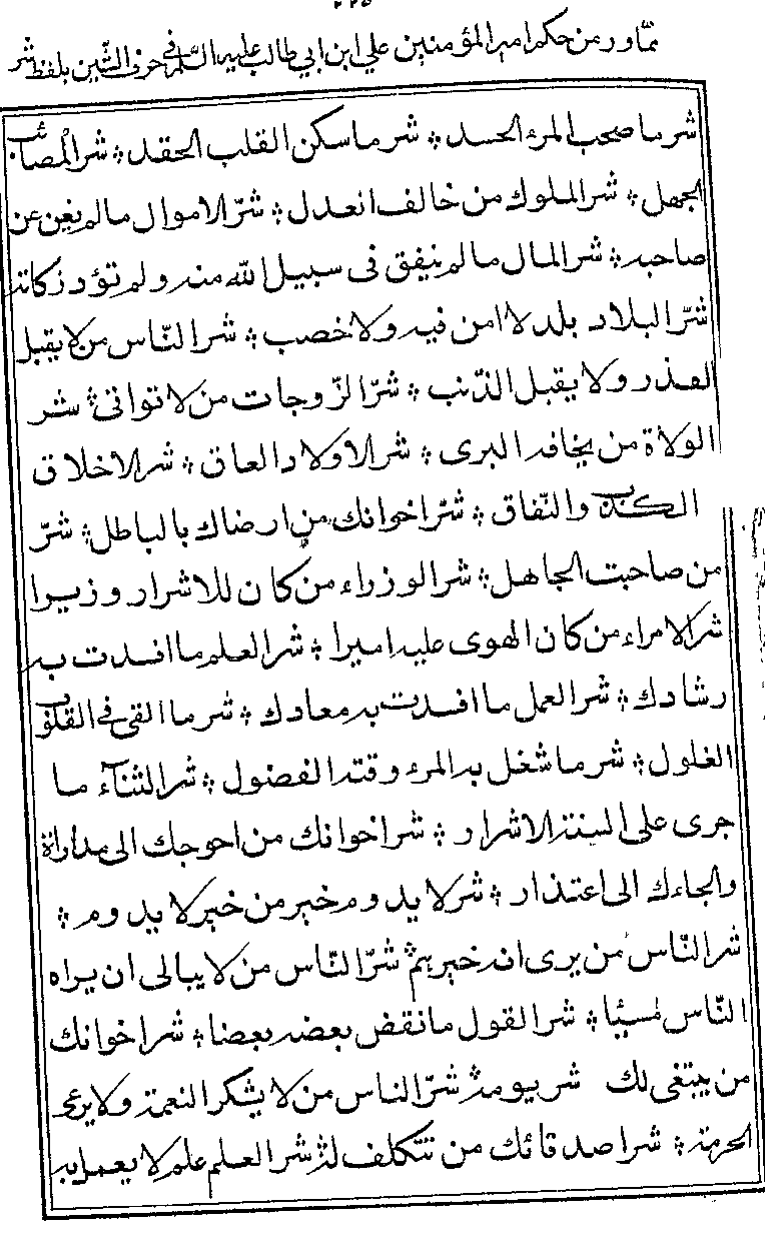 ٢٢٥
مما ورد من حكم امير المؤمنين علي ابن ابي طالب عليه السلام في حرف الشين بلفظ شر
شر ما صحب المرء الحسد ؛ شر ما سكن القلب الحقد ؛ شر المصائب
الجهل ؛ شر الملوك من خالف العدل ؛ شرّ الاموال ما لم يغن عن
صاحبه ؛ شر المال ما لم ينفق فى سبيل الله منه ولم تؤد زكاته
شرّ البلاد بلد لا امن فيه ولا خصب ؛ شر النّاس من لا يقبل
العذر ولا يقبل الذّنب ؛ شرّ الزّوجات من لا تواتى ؛ شر
الولاة من يخافه البرى ؛ شر الاولاد العاق ؛ شر الاخلاق
الكذب والنّفاق ؛ شرّ اخوانك من ارضاك بالباطل ؛ شرّ
من صاحبت الجاهل ؛ شر الوزراء من كان للاشرار وزيرا
شر الامراء من كان الهوى عليه اميرا ؛ شر العلم ما افسدت به
رشادك ؛ شر العمل ما افسدت به معادك ؛ شر ما القى فى القلوب
الغلول ؛ شر ما شغل به المرء وقته الفضول ؛ شر الثناء ما
جرى على السنة الاشرار ؛ شر اخوانك من احوجك الى مداراة
والجاءك الى اعتذار ؛ شر لا يدوم خير من خير لا يدوم ؛
شر النّاس من يرى انه خيرهم ؛ شرّ النّاس من لا يبالى ان يراه
النّاس مسيئا ؛ شر القول ما نقض بعضه بعضا ؛ شر اخوانك
من يبتغى لك شر يومه ؛ شرّ الناس من لا يشكر النعمة ولا يرعى
الحرمة ؛ شر اصدقائك من تتكلف له ؛ شر العلم علم لا يعمل به